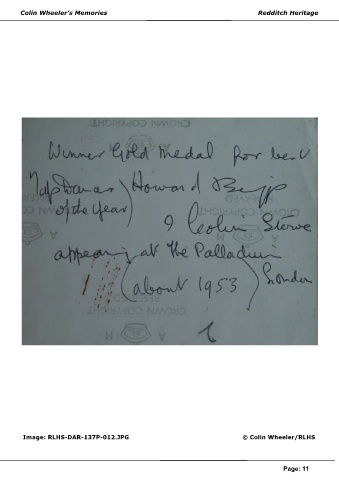 Colin Wheeler's Memories Redditch Heritage
CROWN COPYRIGHT
Winner Gold Medal for best
Tap Dancer Howard
of the Year)
RESERVED
CROWN COPYRIGHT
& Colin Stowe
appearing at the Palladium
(about 1953) London
RESERVED
CROWN COPYRIGHT
Image: RLHS-DAR-137P-012.JPG © Colin Wheeler/RLHS
Page: 11